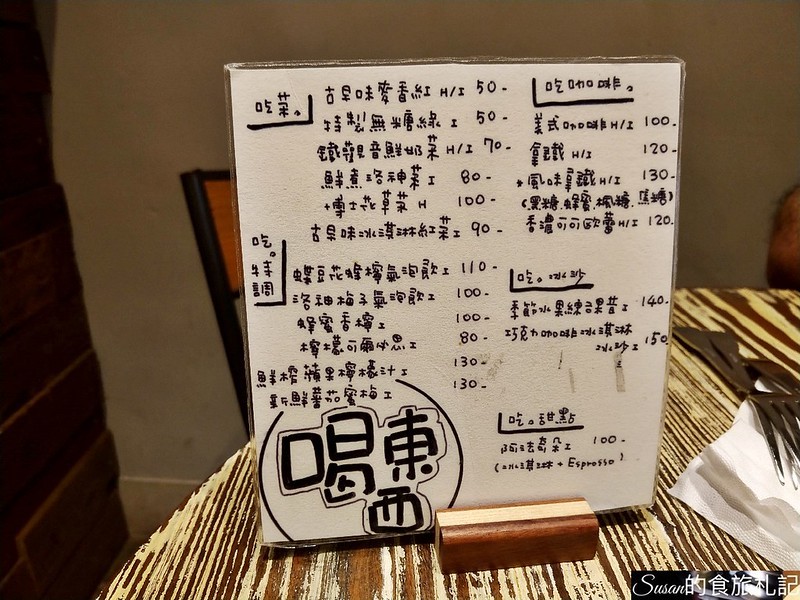 吃茶。
古早味麥香紅 H/I 50-
特製無糖綠 I 50-
鐵觀音鮮奶茶 H/I 70-
鮮煮洛神茶 I 80-
+博士花草茶 H 100-
古早味冰淇淋紅茶 I 90-
吃。特調
蝶豆花蜂檸氣泡飲 I 110-
洛神梅子氣泡飲 I 100-
蜂蜜香檸 I 100-
檸檬可爾必思 I 80-
鮮榨蘋果檸檬汁 I 130-
新鮮蕃茄蜜梅 I 130-
喝東西
吃咖啡。
美式咖啡 H/I 100-
拿鐵 H/I 120-
風味拿鐵 H/I 130-
(黑糖.蜂蜜.楓糖.焦糖)
香濃可可歐蕾 H/I 120.
吃。冰沙
季節水果練課昔 I 140.
巧克力咖啡冰淇淋
冰沙 I 150
吃。甜點
阿法奇朵 I 100-
(冰淇淋 + Espresso)
Susan的食旅札記